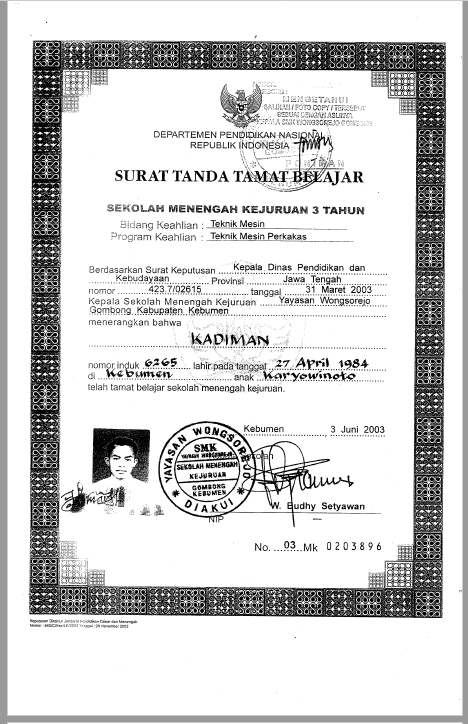 MENGETAHUI
SALINAN / FOTO COPY / TERSEBUT
SESUAI DENGAN ASLINYA
KEPALA SMK WONGSOREJO GOMBONG
DEPARTEMEN PENDIDIKAN NASIONAL
REPUBLIK INDONESIA
SURAT TANDA TAMAT BELAJAR
SEKOLAH MENENGAH KEJURUAN 3 TAHUN
Bidang Keahlian : Teknik Mesin
Program Keahlian : Teknik Mesin Perkakas
Berdasarkan Surat Keputusan Kepala Dinas Pendidikan dan
Kebudayaan Provinsi Jawa Tengah
nomor 423.7/02615 tanggal 31 Maret 2003
Kepala Sekolah Menengah Kejuruan Yayasan Wongsorejo
Gombong Kabupaten Kebumen
menerangkan bahwa
KADIMAN
nomor induk 6265 lahir pada tanggal 27 April 1984
di Kebumen anak Karyowinoto
telah tamat belajar sekolah menengah kejuruan.
Kebumen 3 Juni 2003
YAYASAN WONGSOREJO
SMK
SEKOLAH MENENGAH
KEJURUAN
GOMBONG
KEBUMEN
DIAKUI
W. Budhy Setyawan
NIP –
No. 03 Mk 0203896
Keputusan Direktur Jenderal Pendidikan Dasar dan Menengah